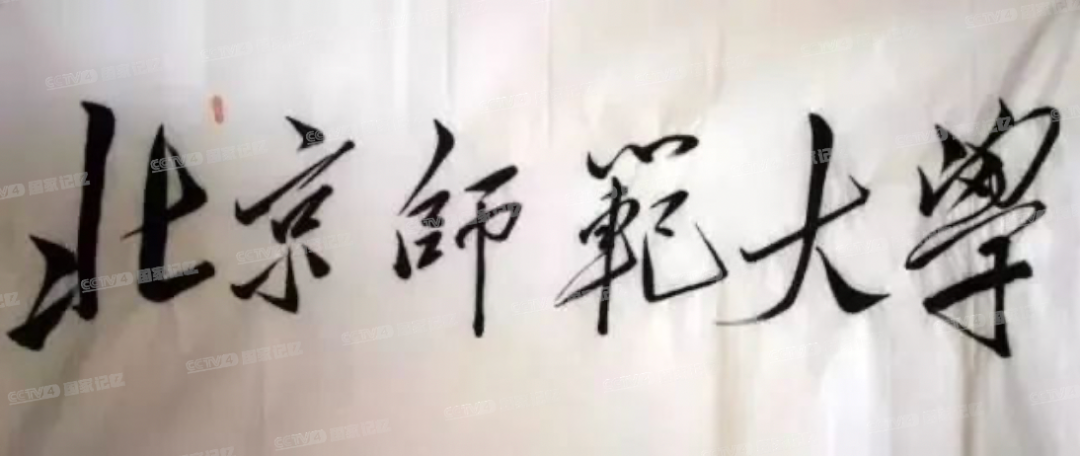 北京師範大學
CCTV4 国家记忆